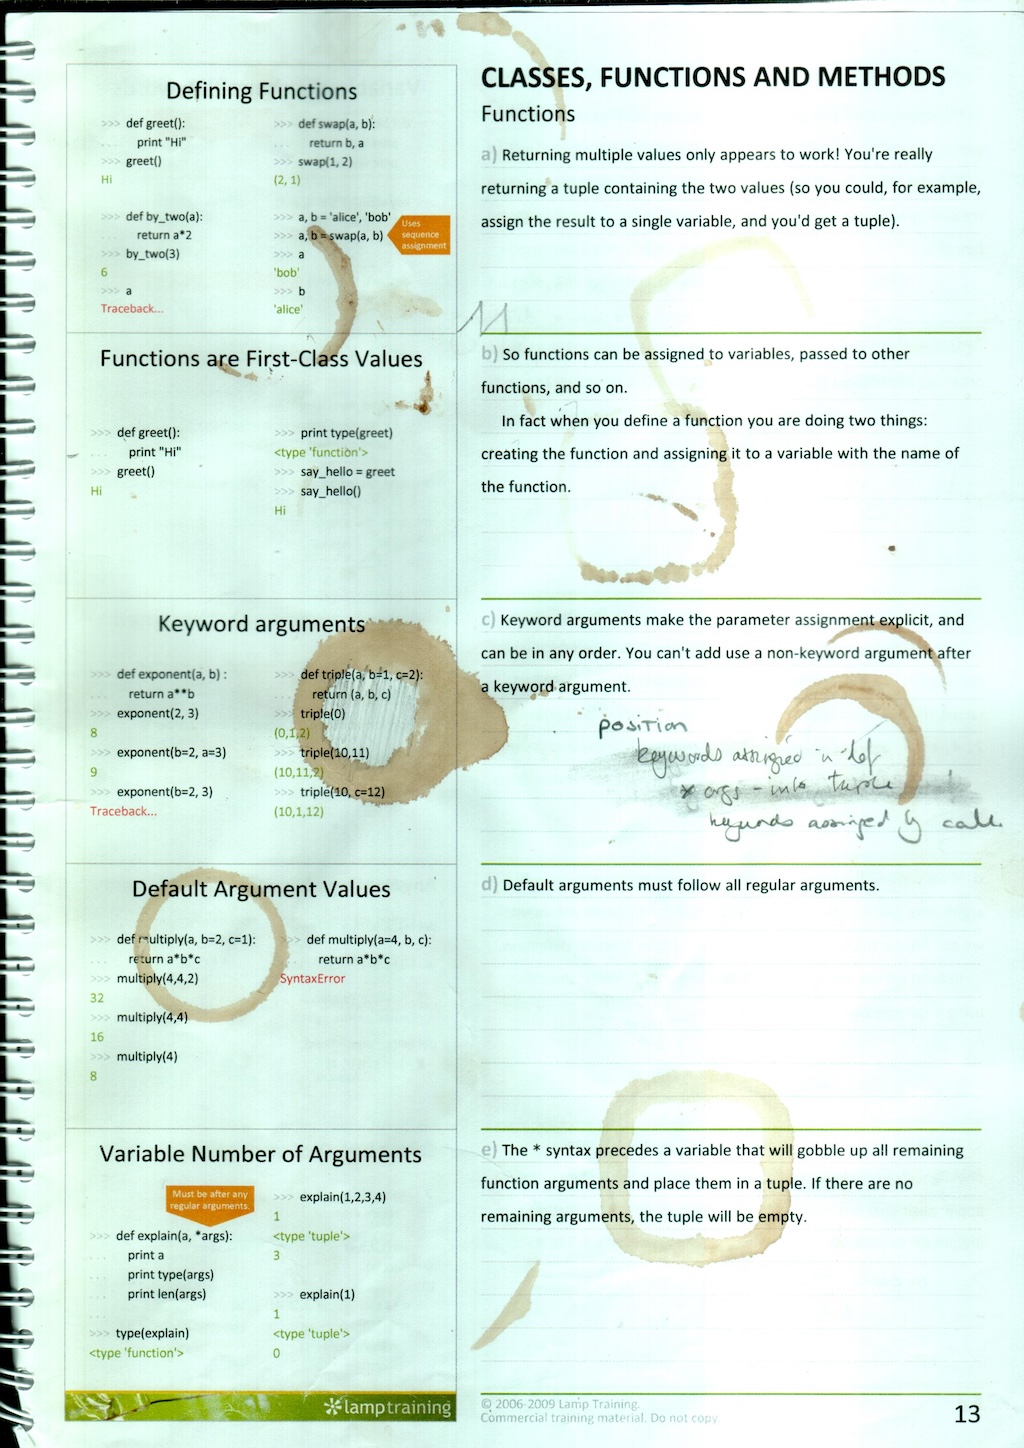 Defining Functions
>>> def greet():
... print "Hi"
>>> greet()
Hi
>>> def by_two(a):
... return a*2
>>> by_two(3)
6
>>> a
Traceback...
>>> def swap(a, b):
... return b, a
>>> swap(1, 2)
(2, 1)
>>> a, b = 'alice', 'bob'
>>> a, b = swap(a, b)
>>> a
'bob'
>>> b
'alice'
Uses
sequence
assignment
Functions are First-Class Values
>>> def greet():
... print "Hi"
>>> greet()
Hi
>>> print type(greet)
<type 'function'>
>>> say_hello = greet
>>> say_hello()
Hi
Keyword arguments
>>> def exponent(a, b) :
... return a**b
>>> exponent(2, 3)
8
>>> exponent(b=2, a=3)
9
>>> exponent(b=2, 3)
Traceback...
>>> def triple(a, b=1, c=2):
... return (a, b, c)
>>> triple(0)
(0,1,2)
>>> triple(10,11)
(10,11,2)
>>> triple(10, c=12)
(10,1,12)
Default Argument Values
>>> def multiply(a, b=2, c=1):
... return a*b*c
>>> multiply(4,4,2)
32
>>> multiply(4,4)
16
>>> multiply(4)
8
>>> def multiply(a=4, b, c):
... return a*b*c
SyntaxError
Variable Number of Arguments
Must be after any
regular arguments.
>>> def explain(a, *args):
... print a
... print type(args)
... print len(args)
...
>>> type(explain)
<type 'function'>
>>> explain(1,2,3,4)
1
<type 'tuple'>
3
>>> explain(1)
1
<type 'tuple'>
0
lamptraining
CLASSES, FUNCTIONS AND METHODS
Functions
a) Returning multiple values only appears to work! You're really
returning a tuple containing the two values (so you could, for example,
assign the result to a single variable, and you'd get a tuple).
b) So functions can be assigned to variables, passed to other
functions, and so on.
In fact when you define a function you are doing two things:
creating the function and assigning it to a variable with the name of
the function.
c) Keyword arguments make the parameter assignment explicit, and
can be in any order. You can't add use a non-keyword argument after
a keyword argument.
position
keywords assigned in def
* args - into tuple
keywords assigned by call
d) Default arguments must follow all regular arguments.
e) The * syntax precedes a variable that will gobble up all remaining
function arguments and place them in a tuple. If there are no
remaining arguments, the tuple will be empty.
© 2006-2009 Lamp Training.
Commercial training material. Do not copy
13